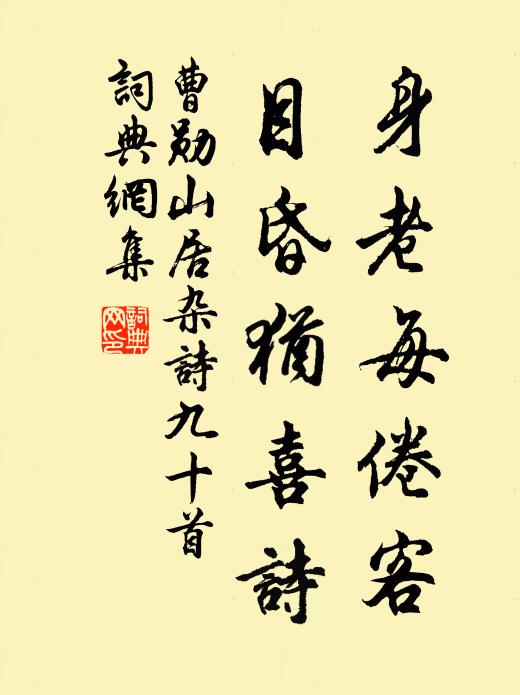 身老每倦客
目昏猶喜詩
曹勛山居杂詩九十首
詞典網集
詞典
网印